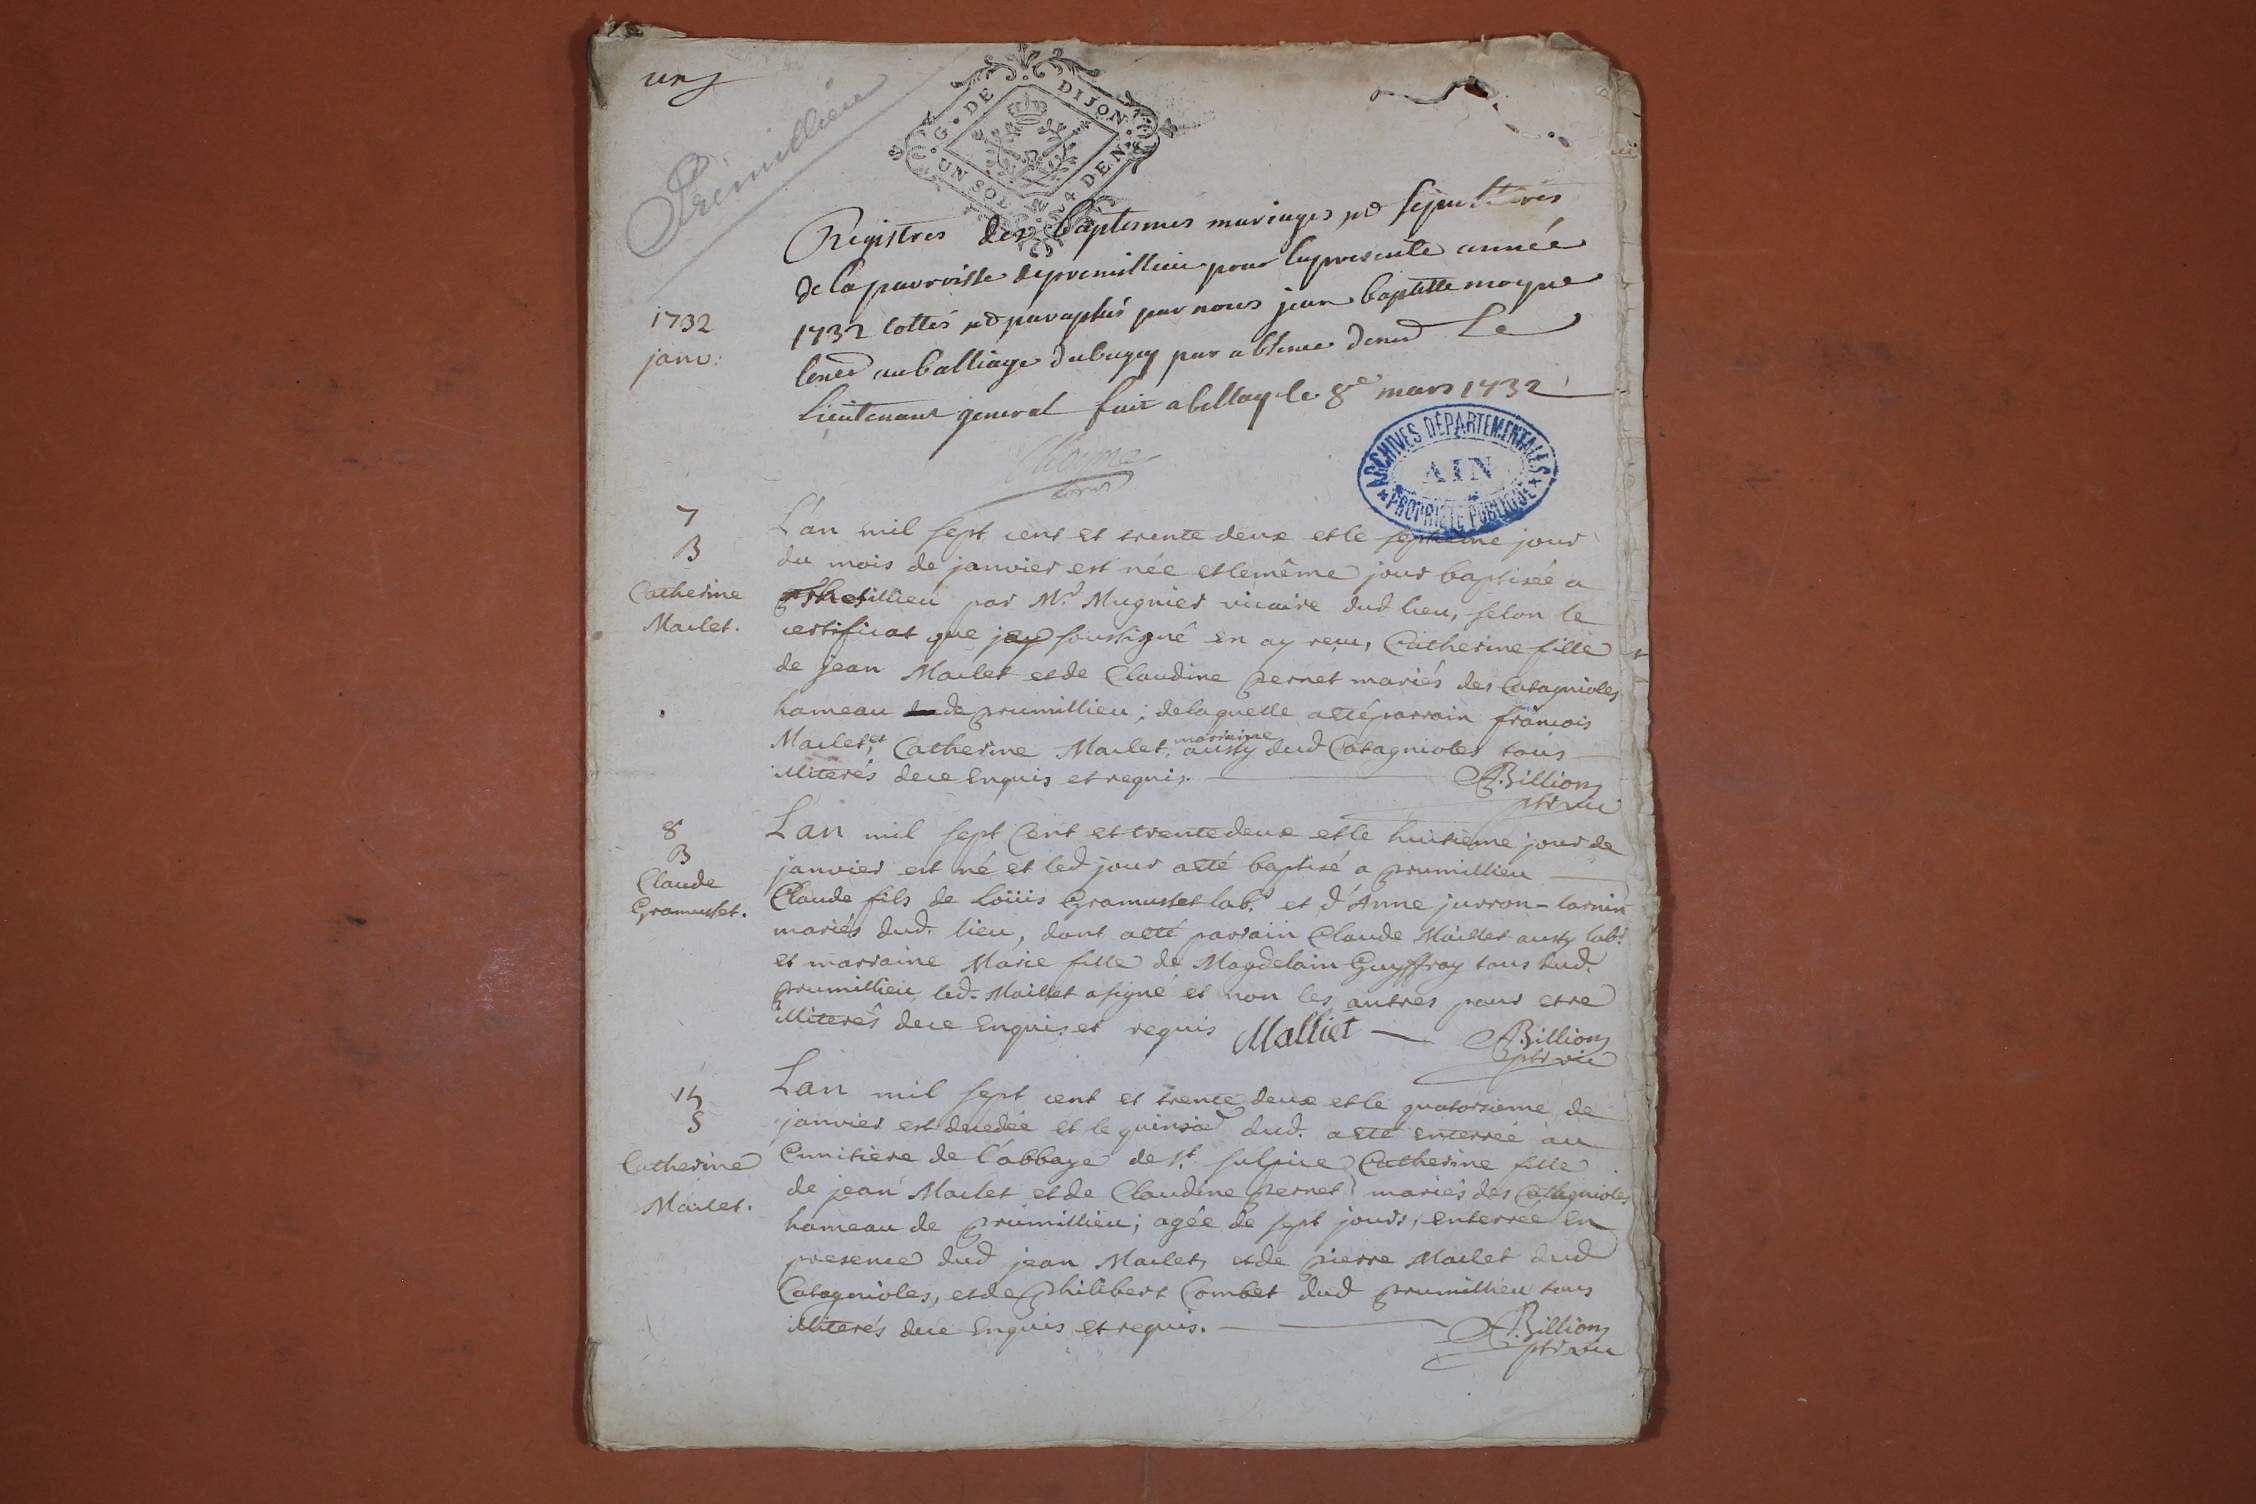 ung
Prémillieu
G. DE DIJON
UN SOL 4 DEN.
Registres des baptesmes mariages et sepultures
de la parroisse de premillieu pour la presente année
1732 cottés et paraphés par nous jean baptiste moyne
au balliage du bugey par absence Le
Lieutenant general fait a bellay le 8e mars 1732
1732
janv:
Moyne
ARCHIVES DÉPARTEMENTALES
AIN
PROPRIÉTÉ PUBLIQUE
7
B
Catherine
Maclet.
L'an mil sept cent et trente deux et le septieme jour
du mois de janvier est née et le même jour baptisée a
par Mr. Mugnier vicaire dud lieu, selon le
certificat que jay soussigné en ay reçu, Catherine fille
de jean Maclet et de Claudine Pernet mariés des Catagnioles
hameau de prumillieu; de laquelle a eté parrain françois
Maclet, et Catherine Maclet, marraine aussy dud Catagnioles tous
illiterés de ce Enquis et requis. A. Billion
ptr vic
8
B
Claude
Gramusset.
L'an mil sept Cent et trente deux et le huitieme jour de
janvier est né et led jour a eté baptisé a prumillieu
Claude fils de Loüis Gramusset labr. et d'Anne jurron-
mariés dud. lieu, dont a eté parrain Claude Maillet aussy labr.
et marraine Marie fille de Magdelain Guyffray tous dud.
prumillieu, led. Maillet a signé et non les autres pour etre
illiterés de ce Enquis et requis Malliet A. Billion
ptr vic
14
S
Catherine
Maclet.
L'an mil sept cent et trente deux et le quatorzieme de
janvier est decedée et le quinzie dud. a eté enterrée au
Cimitiere de l'abbaye de St. sulpice Catherine fille
de jean Maclet et de Claudine Pernet mariés des Catagnioles
hameau de prumillieu; agée de sept jours, enterrée En
presence dud jean Maclet, et de pierre Maclet dud
Catagnioles, et de Philibert Combet dud prumillieu tous
illiterés de ce Enquis et requis. A. Billion
ptr vic